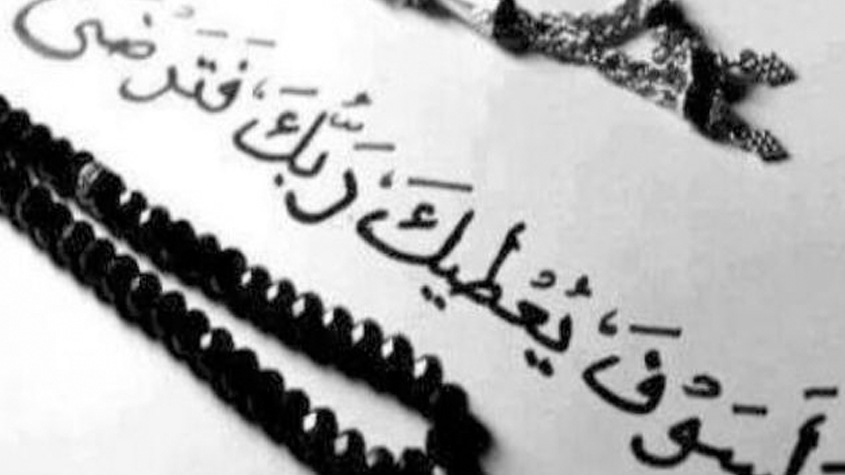 لَسَوْفَ يُعْطِيكَ رَبُّكَ فَتَرْضَىٰ